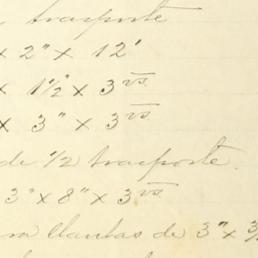 trasporte
x 2" x 12'
x 1 1/2" x 3 vs.
x 3" x 3 vs.
de 1/2 trasporte.
3" x 8" x 3 vs.
llantas de 3" x